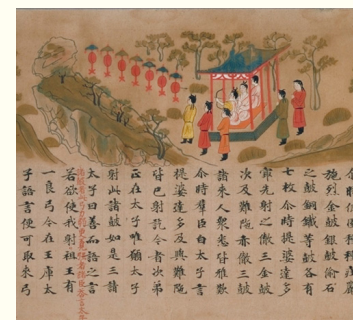 施烈金鼓銀鼓鍮石
之鼓銅鐵等鼓各有
七枚尒時提婆達多
先射之徹三金鼓
次及難陁亦徹三鼓
諸來人衆悉皆雅歎
尒時羣臣白太子言
提婆達多及與難陁
皆已射訖今者次第
正在太子唯願太子
射此諸鼓如是三請
太子曰善而語之言
若欲使我射祖王有
一良弓今在王庫太
子語言便可取來弓